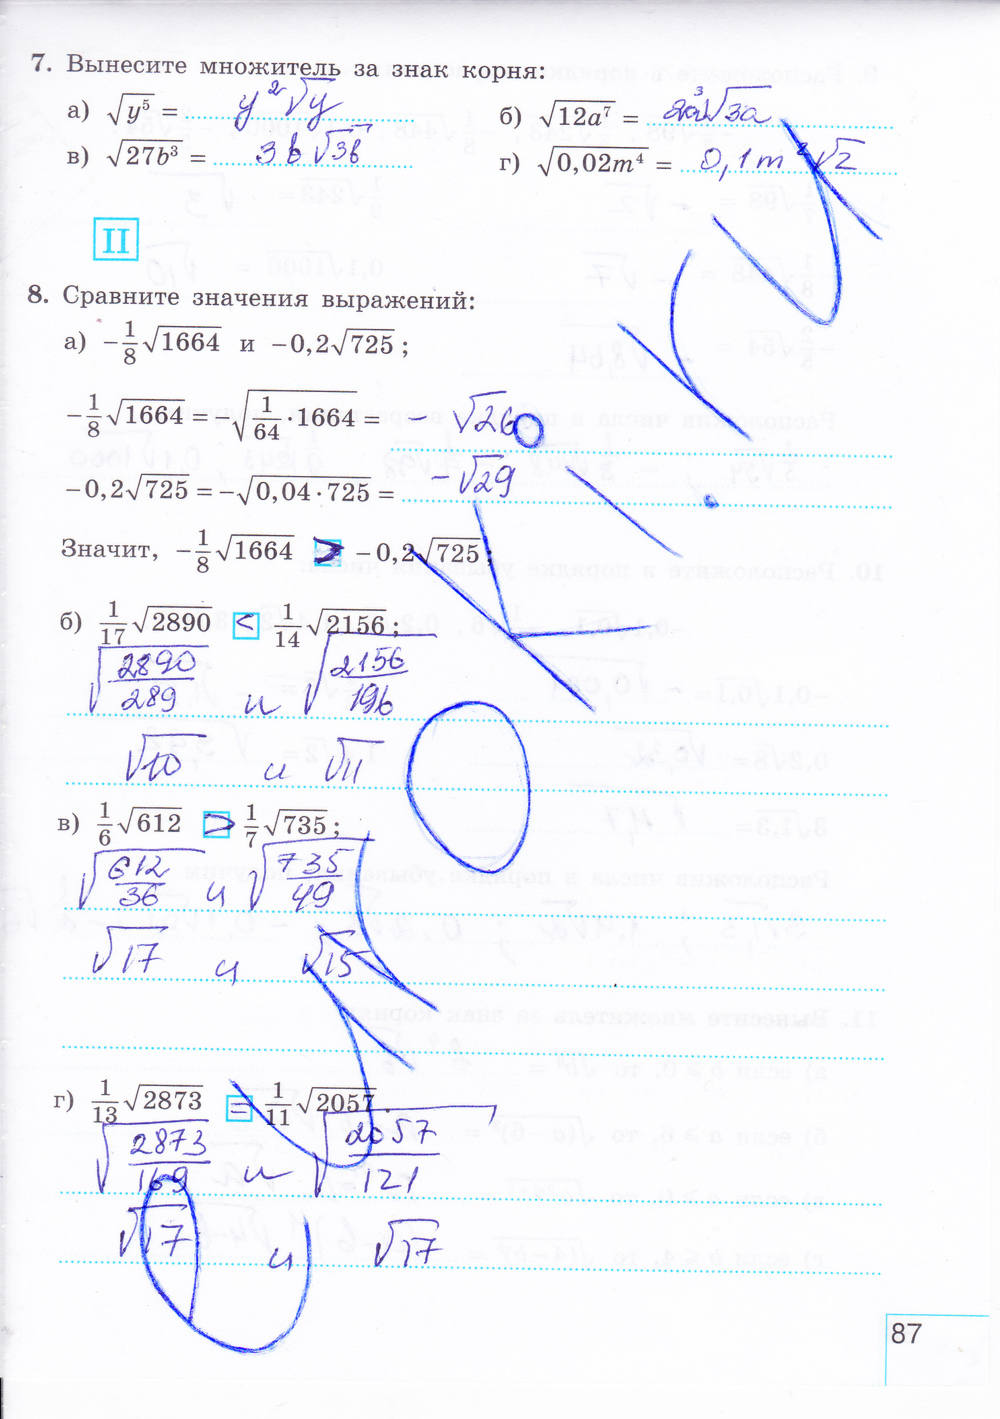 7. Вынесите множитель за знак корня:
а) √y⁵ = y²√y
б) √12a⁷ = 2a³√3a
в) √27b³ = 3b√3b
г) √0,02m⁴ = 0,1m²√2
II
8. Сравните значения выражений:
а) −1/8√1664 и −0,2√725;
−1/8√1664 = −√(1/64 · 1664) = √26
−0,2√725 = −√(0,04 · 725) = −√29
Значит, −1/8√1664 > −0,2√725;
б) 1/17√2890 < 1/14√2156;
√(2890/289) и √(2156/196)
√10 и √11
в) 1/6√612 > 1/7√735;
√(612/36) и √(735/49)
√17 и √15
г) 1/13√2873 = 1/11√2057.
√(2873/169) и √(2057/121)
√17 и √17
87